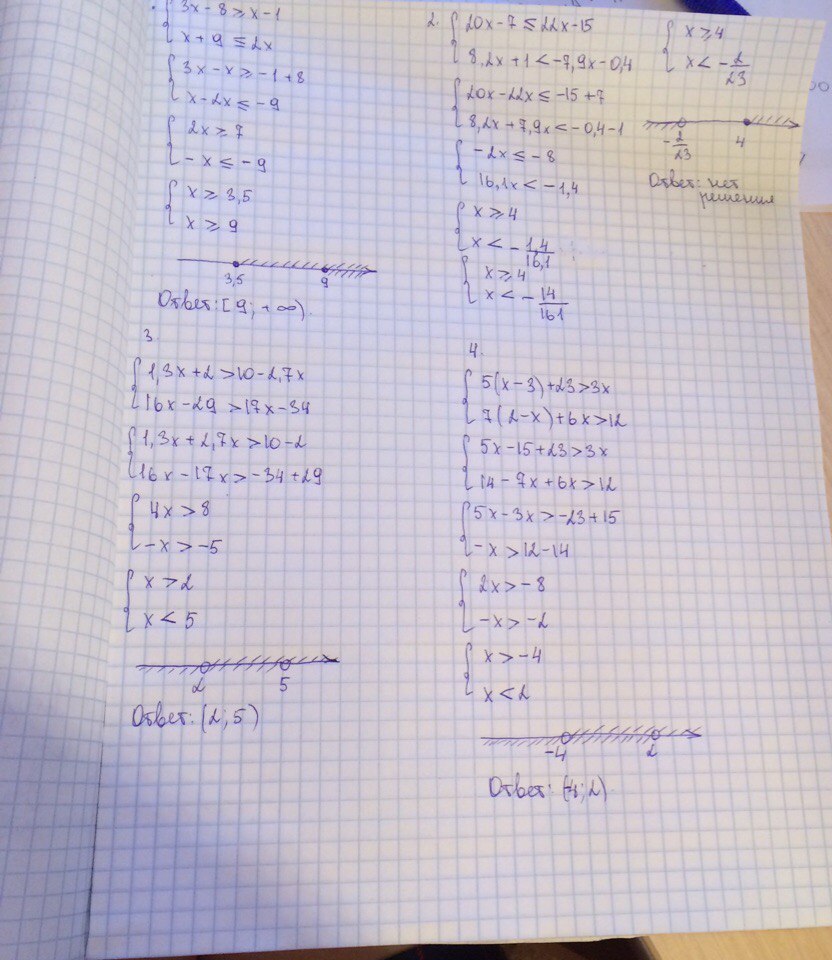 3x - 8 ≥ x - 1
x + 9 ≤ 2x
3x - x ≥ -1 + 8
x - 2x ≤ -9
2x ≥ 7
-x ≤ -9
x ≥ 3,5
x ≥ 9
3,5 9
Ответ: [9; +∞).
2.
20x - 7 ≤ 22x - 15
8,2x + 1 < -7,9x - 0,4
20x - 22x ≤ -15 + 7
8,2x + 7,9x < -0,4 - 1
-2x ≤ -8
16,1x < -1,4
x ≥ 4
x < -1,4/16,1
x ≥ 4
x < -14/161
x ≥ 4
x < -2/23
-2/23 4
Ответ: нет
решения
3.
1,3x + 2 > 10 - 2,7x
16x - 29 > 17x - 34
1,3x + 2,7x > 10 - 2
16x - 17x > -34 + 29
4x > 8
-x > -5
x > 2
x < 5
2 5
Ответ: (2; 5)
4.
5(x - 3) + 23 > 3x
7(2 - x) + 6x > 12
5x - 15 + 23 > 3x
14 - 7x + 6x > 12
5x - 3x > -23 + 15
-x > 12 - 14
2x > -8
-x > -2
x > -4
x < 2
-4 2
Ответ: (-4; 2)